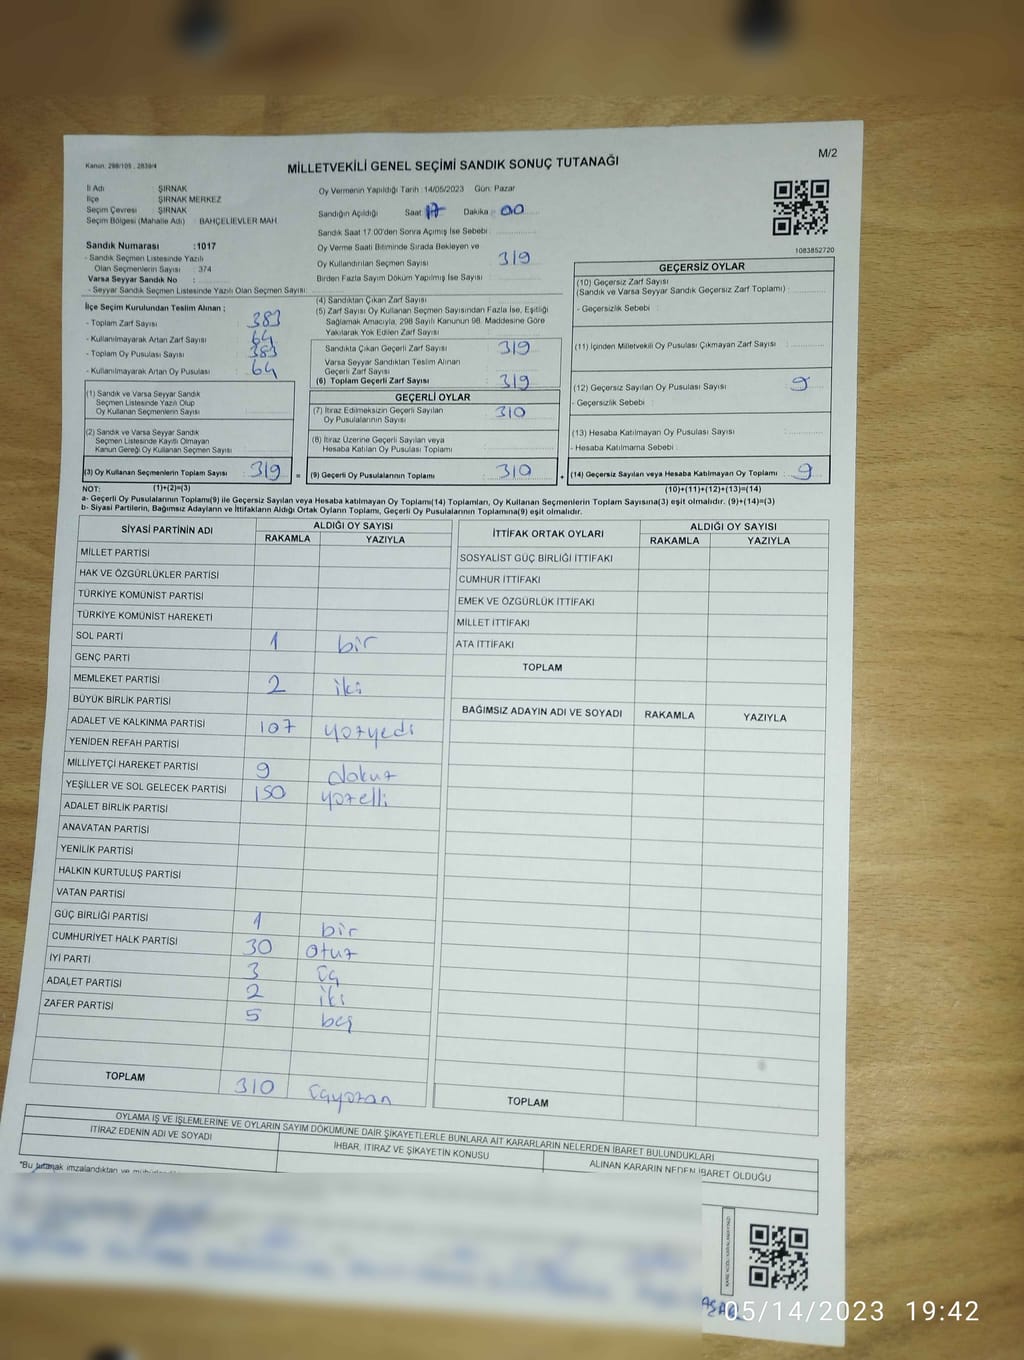 Kanun. 298/105 , 2839/4
MİLLETVEKİLİ GENEL SEÇİMİ SANDIK SONUÇ TUTANAĞI
M/2
İl Adı : ŞIRNAK
İlçe : ŞIRNAK MERKEZ
Seçim Çevresi : ŞIRNAK
Seçim Bölgesi (Mahalle Adı) : BAHÇELİEVLER MAH.
Sandık Numarası :1017
- Sandık Seçmen Listesinde Yazılı
Olan Seçmenlerin Sayısı : 374
Varsa Seyyar Sandık No :
- Seyyar Sandık Seçmen Listesinde Yazılı Olan Seçmen Sayısı:
Oy Vermenin Yapıldığı Tarih :14/05/2023 Gün: Pazar
Sandığın Açıldığı Saat : 17 Dakika : 00
Sandık Saat 17.00'den Sonra Açılmış İse Sebebi :
Oy Verme Saati Bitiminde Sırada Bekleyen ve
Oy Kullandırılan Seçmen Sayısı : 319
Birden Fazla Sayım Döküm Yapılmış İse Sayısı :
1083852720
İlçe Seçim Kurulundan Teslim Alınan ;
- Toplam Zarf Sayısı : 383
- Kullanılmayarak Artan Zarf Sayısı : 64
- Toplam Oy Pusulası Sayısı : 383
- Kullanılmayarak Artan Oy Pusulası : 64
(1) Sandık ve Varsa Seyyar Sandık
Seçmen Listesinde Yazılı Olup
Oy Kullanan Seçmenlerin Sayısı
(2) Sandık ve Varsa Seyyar Sandık
Seçmen Listesinde Kayıtlı Olmayan
Kanun Gereği Oy Kullanan Seçmen Sayısı
(3) Oy Kullanan Seçmenlerin Toplam Sayısı : 319
(4) Sandıktan Çıkan Zarf Sayısı
(5) Zarf Sayısı Oy Kullanan Seçmen Sayısından Fazla İse, Eşitliği
Sağlamak Amacıyla, 298 Sayılı Kanunun 98. Maddesine Göre
Yakılarak Yok Edilen Zarf Sayısı
Sandıkta Çıkan Geçerli Zarf Sayısı : 319
Varsa Seyyar Sandıktan Teslim Alınan
Geçerli Zarf Sayısı
(6) Toplam Geçerli Zarf Sayısı : 319
GEÇERLİ OYLAR
(7) İtiraz Edilmeksizin Geçerli Sayılan
Oy Pusulalarının Sayısı : 310
(8) İtiraz Üzerine Geçerli Sayılan veya
Hesaba Katılan Oy Pusulası Toplamı
= (9) Geçerli Oy Pusulalarının Toplamı : 310
GEÇERSİZ OYLAR
(10) Geçersiz Zarf Sayısı
(Sandık ve Varsa Seyyar Sandık Geçersiz Zarf Toplamı)
- Geçersizlik Sebebi :
(11) İçinden Milletvekili Oy Pusulası Çıkmayan Zarf Sayısı
(12) Geçersiz Sayılan Oy Pusulası Sayısı : 9
- Geçersizlik Sebebi :
(13) Hesaba Katılmayan Oy Pusulası Sayısı
- Hesaba Katılmama Sebebi :
+ (14) Geçersiz Sayılan veya Hesaba Katılmayan Oy Toplamı : 9
NOT: (1)+(2)=(3) (10)+(11)+(12)+(13)=(14)
a- Geçerli Oy Pusulalarının Toplamı(9) ile Geçersiz Sayılan veya Hesaba katılmayan Oy Toplamı(14) Toplamları, Oy Kullanan Seçmenlerin Toplam Sayısına(3) eşit olmalıdır. (9)+(14)=(3)
b- Siyasi Partilerin, Bağımsız Adayların ve İttifakların Aldığı Ortak Oyların Toplamı, Geçerli Oy Pusulalarının Toplamına(9) eşit olmalıdır.
SİYASİ PARTİNİN ADI ALDIĞI OY SAYISI
RAKAMLA YAZIYLA
MİLLET PARTİSİ
HAK VE ÖZGÜRLÜKLER PARTİSİ
TÜRKİYE KOMÜNİST PARTİSİ
TÜRKİYE KOMÜNİST HAREKETİ
SOL PARTİ 1 bir
GENÇ PARTİ
MEMLEKET PARTİSİ 2 iki
BÜYÜK BİRLİK PARTİSİ
ADALET VE KALKINMA PARTİSİ 107 yüzyedi
YENİDEN REFAH PARTİSİ
MİLLİYETÇİ HAREKET PARTİSİ 9 dokuz
YEŞİLLER VE SOL GELECEK PARTİSİ 150 yüzelli
ADALET BİRLİK PARTİSİ
ANAVATAN PARTİSİ
YENİLİK PARTİSİ
HALKIN KURTULUŞ PARTİSİ
VATAN PARTİSİ
GÜÇ BİRLİĞİ PARTİSİ 1 bir
CUMHURİYET HALK PARTİSİ 30 otuz
İYİ PARTİ 3 üç
ADALET PARTİSİ 2 iki
ZAFER PARTİSİ 5 beş
TOPLAM 310 üçyüzon
İTTİFAK ORTAK OYLARI ALDIĞI OY SAYISI
RAKAMLA YAZIYLA
SOSYALİST GÜÇ BİRLİĞİ İTTİFAKI
CUMHUR İTTİFAKI
EMEK VE ÖZGÜRLÜK İTTİFAKI
MİLLET İTTİFAKI
ATA İTTİFAKI
TOPLAM
BAĞIMSIZ ADAYIN ADI VE SOYADI RAKAMLA YAZIYLA
TOPLAM
OYLAMA İŞ VE İŞLEMLERİNE VE OYLARIN SAYIM DÖKÜMÜNE DAİR ŞİKAYETLERLE BUNLARA AİT KARARLARIN NELERDEN İBARET BULUNDUKLARI
İTİRAZ EDENİN ADI VE SOYADI İHBAR, İTİRAZ VE ŞİKAYETİN KONUSU ALINAN KARARIN NEDEN İBARET OLDUĞU
*Bu tutanak imzalandıktan ve
05/14/2023 19:42